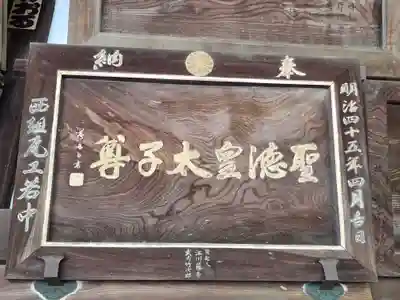 奉納
明治四十五年四月吉日
聖德皇太子尊
西組瓦工若中